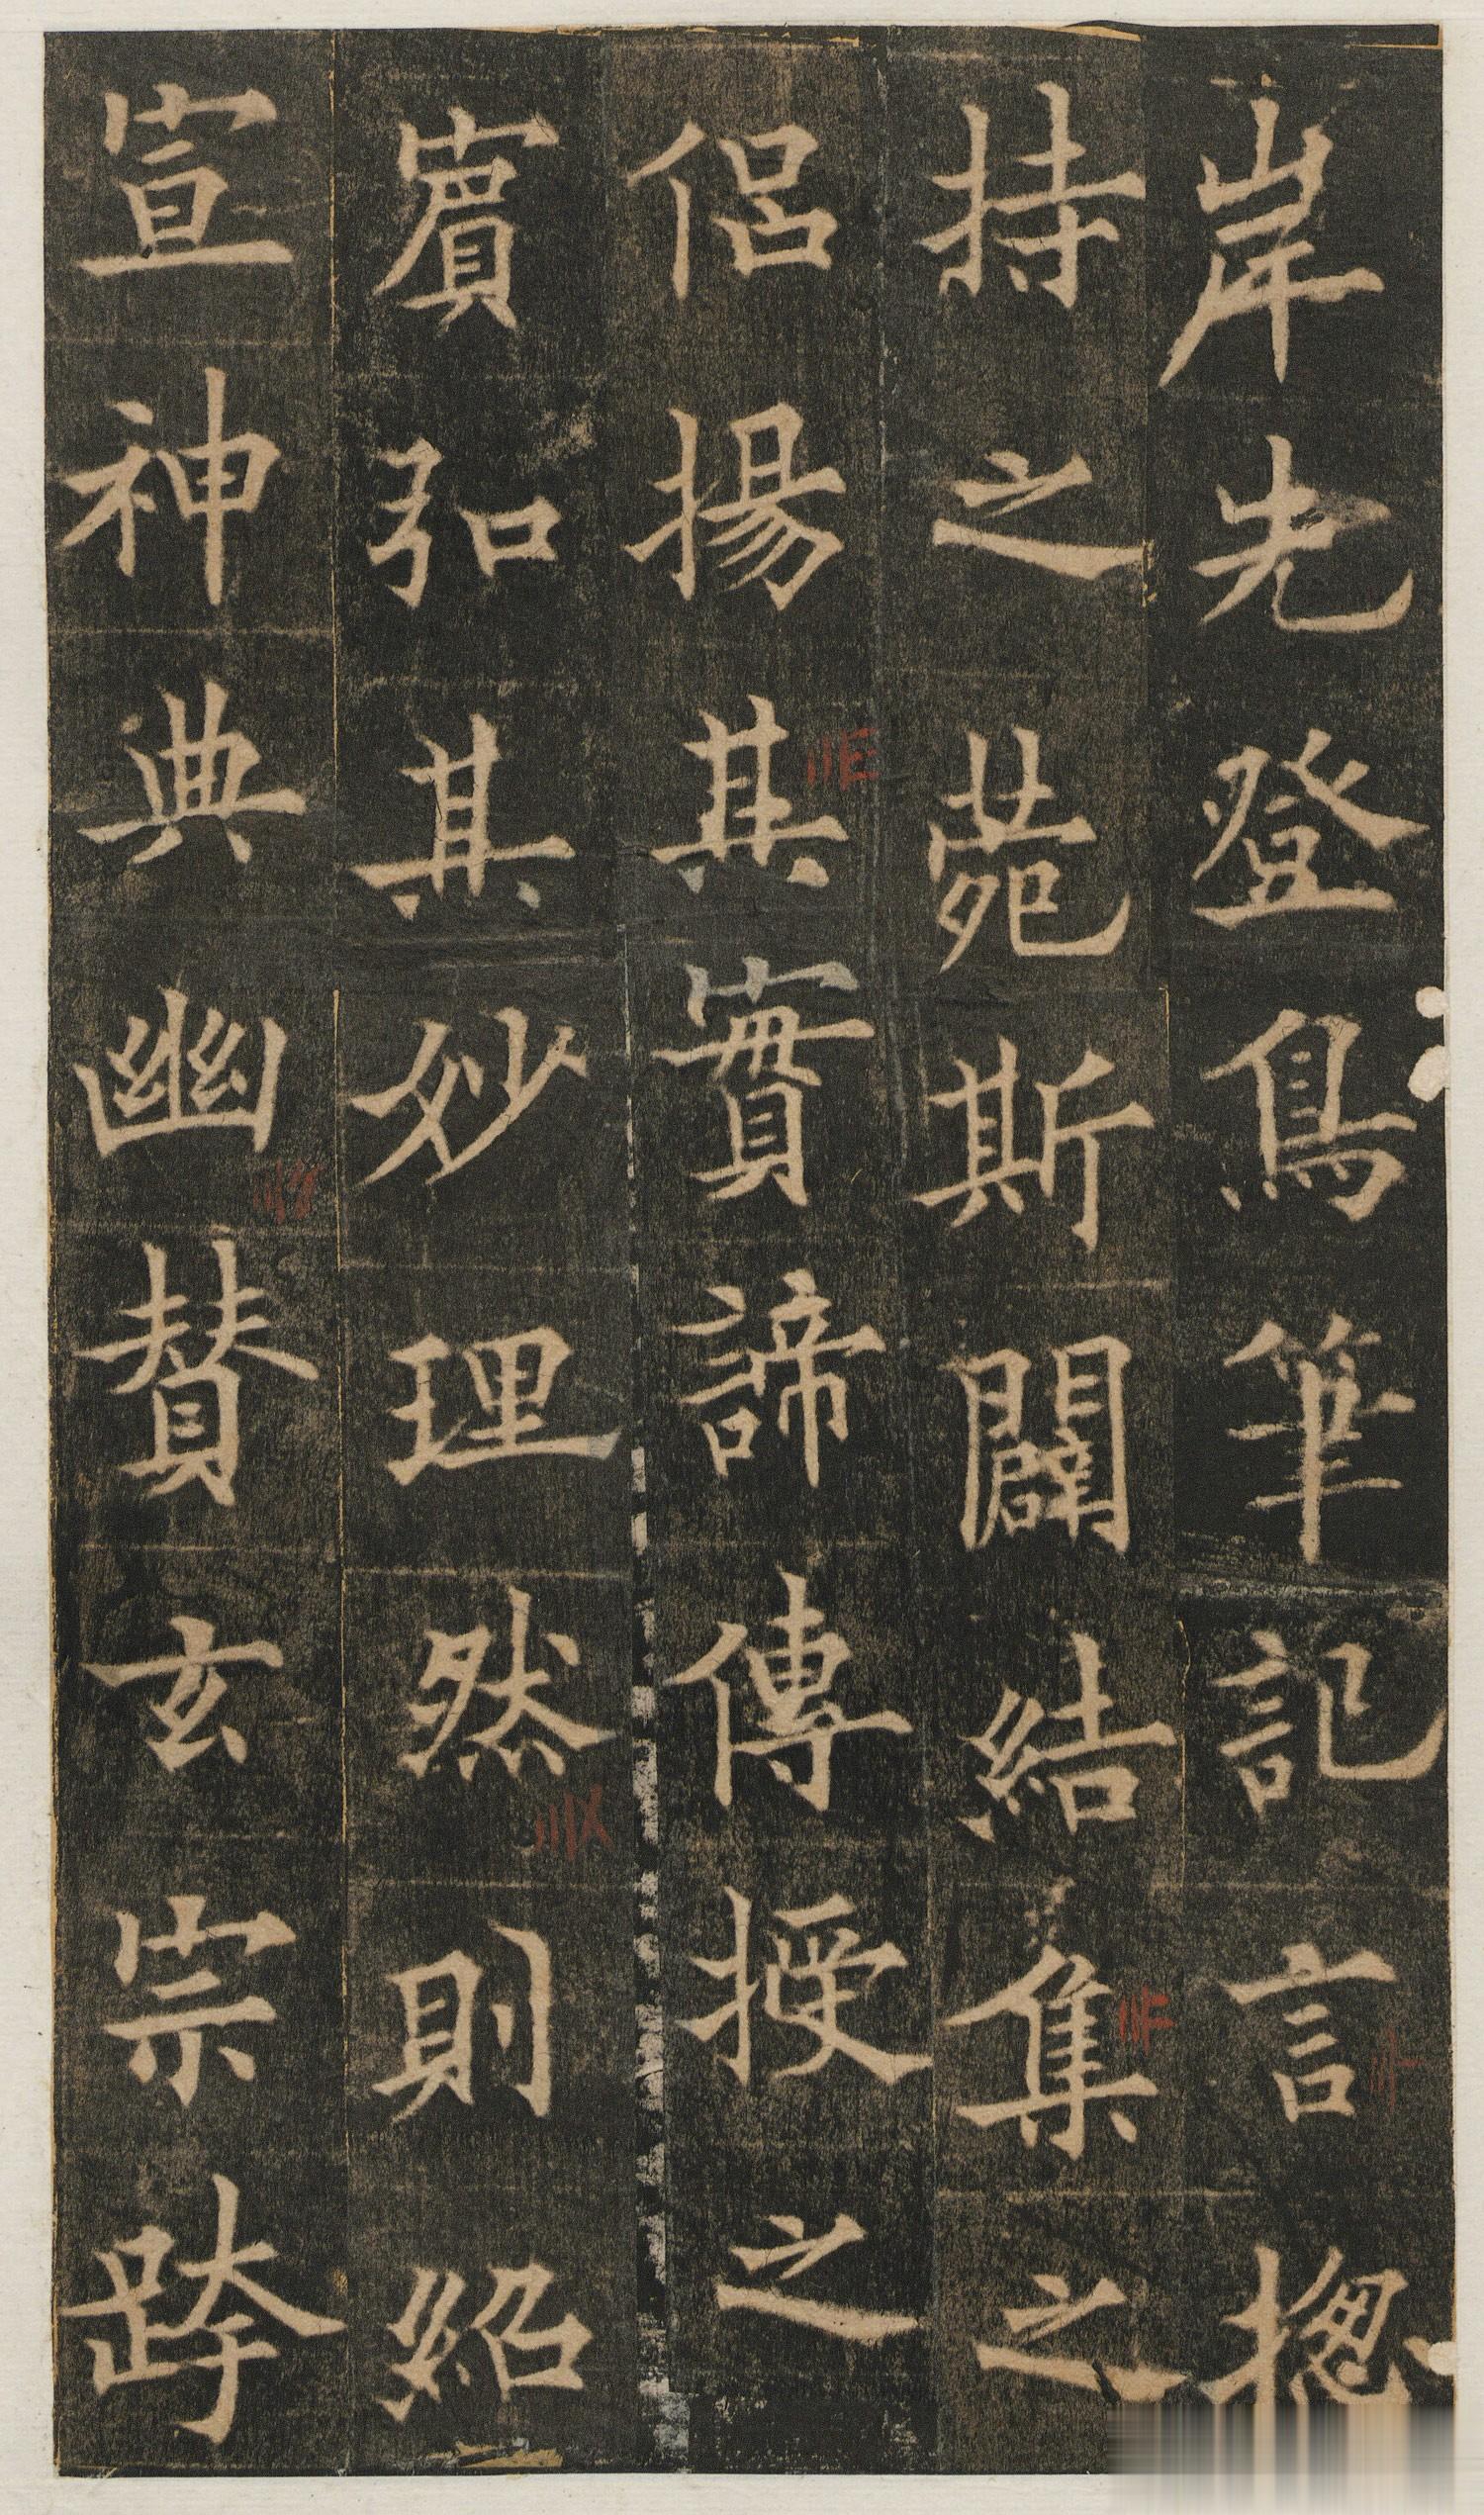 岸先登鳥筆記言揔
持之苑斯闢結集之
侶揚其實諦傳授之
賓弘其妙理然則紹
宣神典幽賛玄宗跨